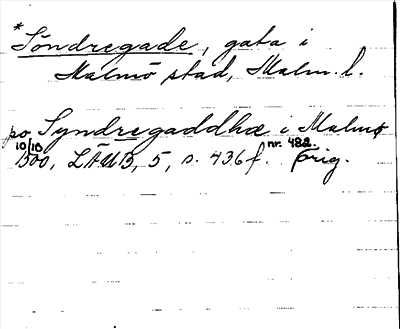 * Söndregade, gata i
Malmö stad, Malm. l.
po Syndregaddhæ i Malmö
10/10 1500, LÄUB, 5, s. 436 f. nr. 482. Orig.